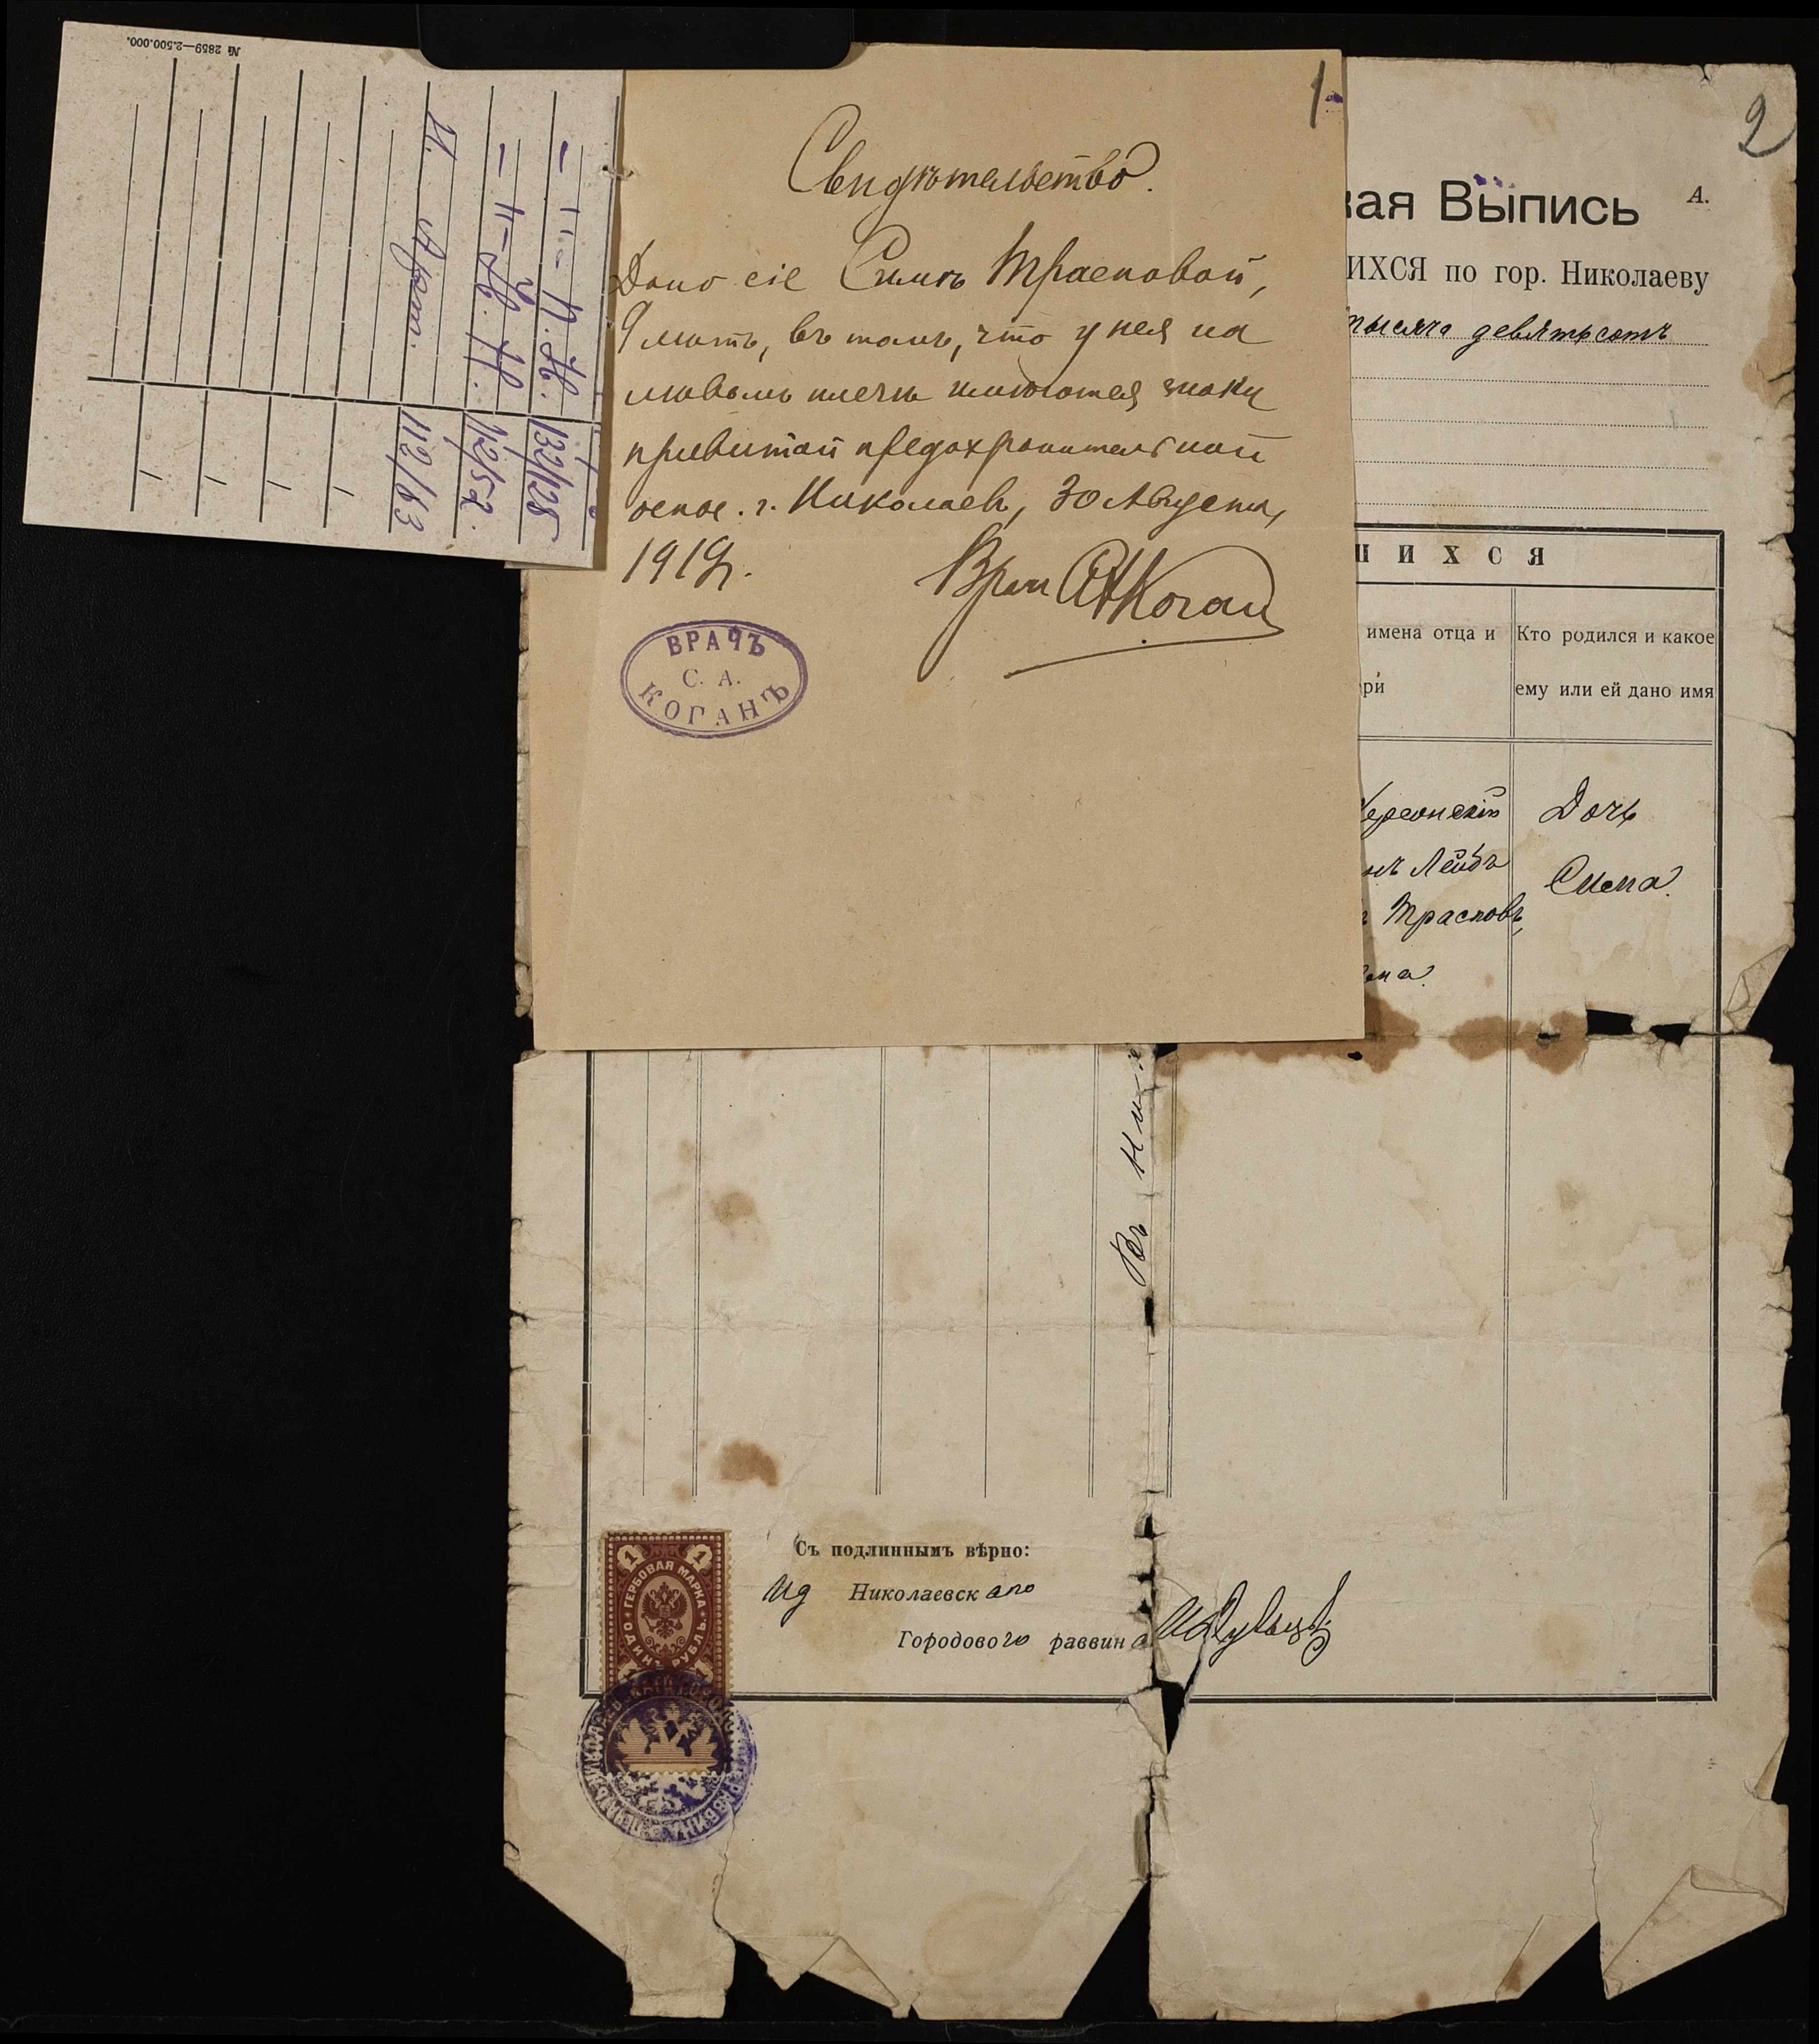 № 2859—2.500.000.
— 11 — Н. Н. 132/128
— 11 — Н. Н. 112/52.
И. Арт. 112/63
1
Свидѣтельство.
Дано сіе Симѣ Трасковой,
9 лѣтъ, въ томъ, что у нея на
лѣвомъ плечѣ имѣются знаки
привитой предохранительной
оспы. г. Николаевъ, 30 Августа,
1919г.
Врач СА Коган
ВРАЧЪ
С. А.
КОГАНЪ
2
кая Выпись А.
ИХСЯ по гор. Николаеву
тысяча девятьсотъ
ШИХСЯ
имена отца и
ри
Кто родился и какое
ему или ей дано имя
Херсонскій
Лейбъ
Трасковъ,
Дочь
Сима.
Въ Ни
Съ подлиннымъ вѣрно:
Ид Николаевскаго
Городового раввина
1 1
ГЕРБОВАЯ МАРКА
ОДИНЪ РУБЛЬ